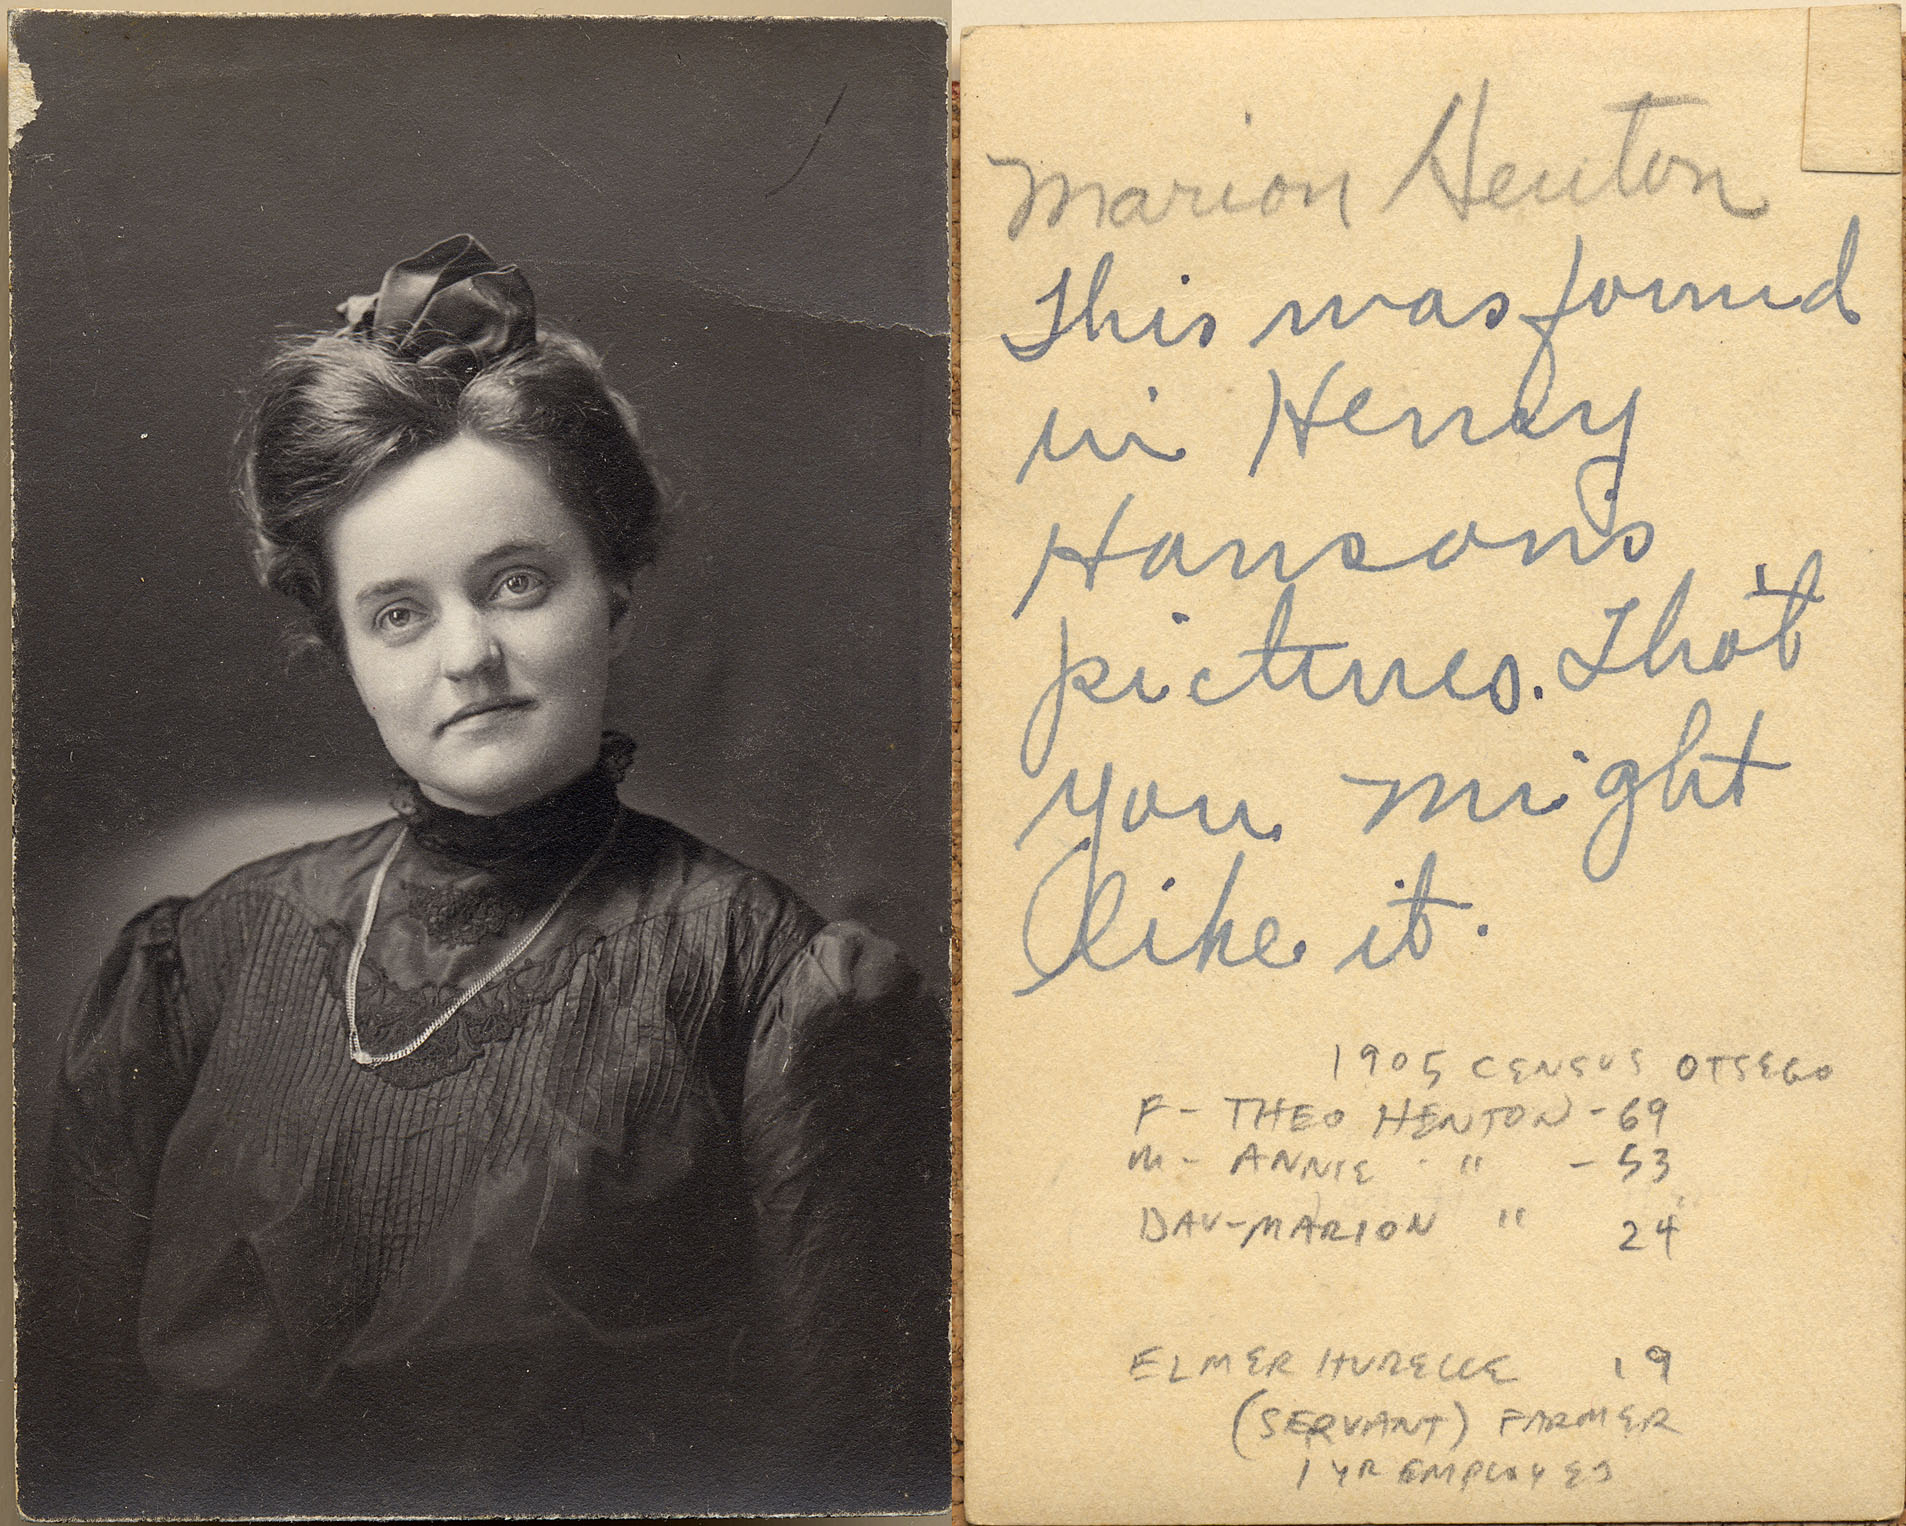 Marion Henton
This was found
in Henry
Hanson's
pictures. Thot
you might
like it.
1905 CENSUS OTSEGO
F - THEO HENTON - 69
M - ANNIE " - 53
DAU - MARION " 24
ELMER HURELLE 19
(SERVANT) FARMER
1 YR EMPLOYED